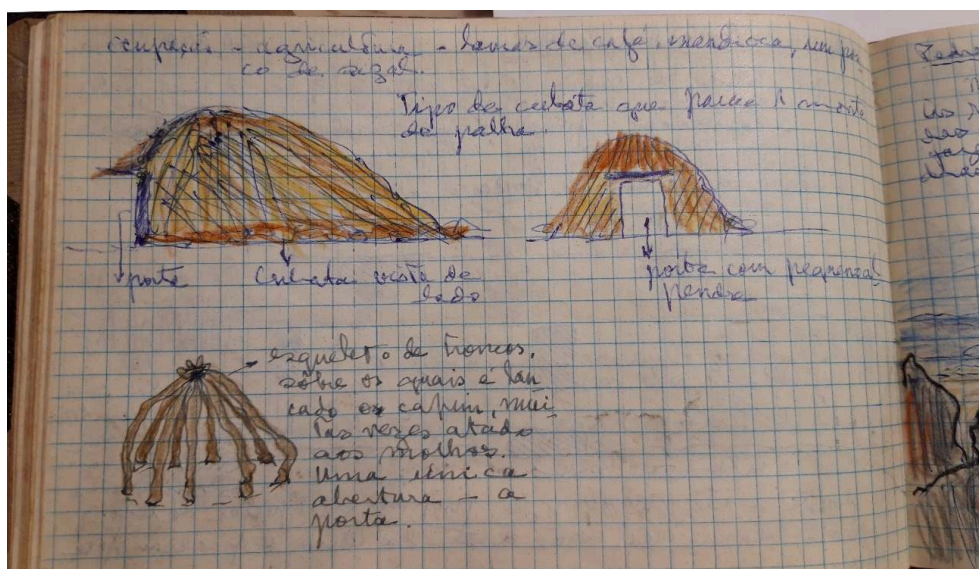 ocupação - agricultura - lavras de café, mandioca, um pou
co de sizal.
Tipo de cubata que parece 1 monte
de palha.
porta
Cubata vista de
lado
porta com pequena
esqueleto de troncos,
sôbre os quais é lan
cado o capim, mui
tas vezes atado
aos molhos.
Uma única
abertura - a
porta.